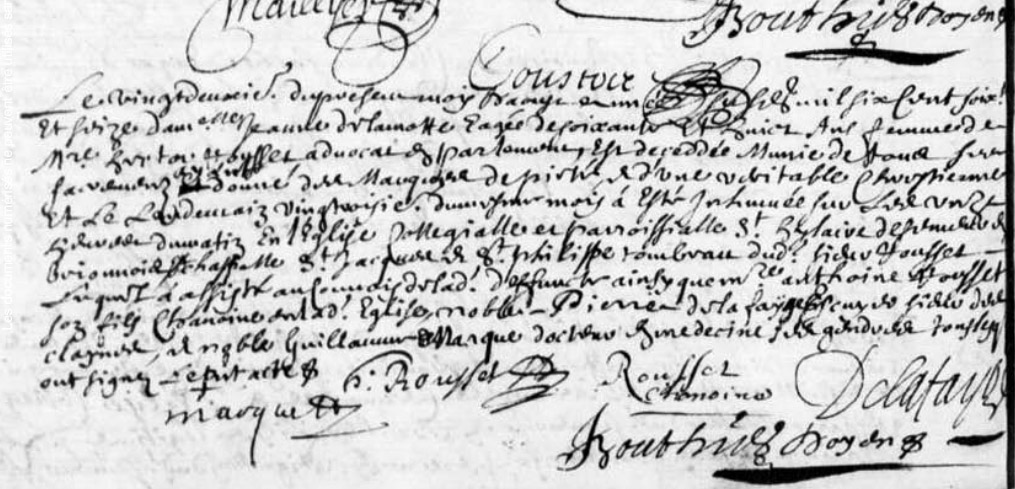 Bouthier doyen
Coustoir
Le vingtdeuxie. du present mois d'aougt mil six cent soix.
Et seize damoiselle Jeanne de lamotte Eagée de soixante Et huict Ans femme de
Mre hector Rousset advocat En parlement, Est decedée Munie de tous ses
sacrements Et donné des Marques de pieté Et d'une veritable Chrestienne
Et Le Lendemain vingtroisie. du mesme mois à Esté Inhumée sur Les unze
heures du matin En l'Eglise Collegialle et parroissialle St. hylaire de semeur En
Brionnois chappelle St. Jacques Et St. philippe tombeau dud. sieur Rousset
Lequel à assisté au Convoi de lad. deffuncte ainsy que mre anthoine Rousset
son fils Chanoine en lad. Eglise, noble Pierre de la faye Escuyer sieur de
, et noble Guillaume Marque docteur En medecine ses gendres tous
ont signez Le present acte
h. Rousset
Rousset chanoine
Delafaye
marque
Bouthier doyen